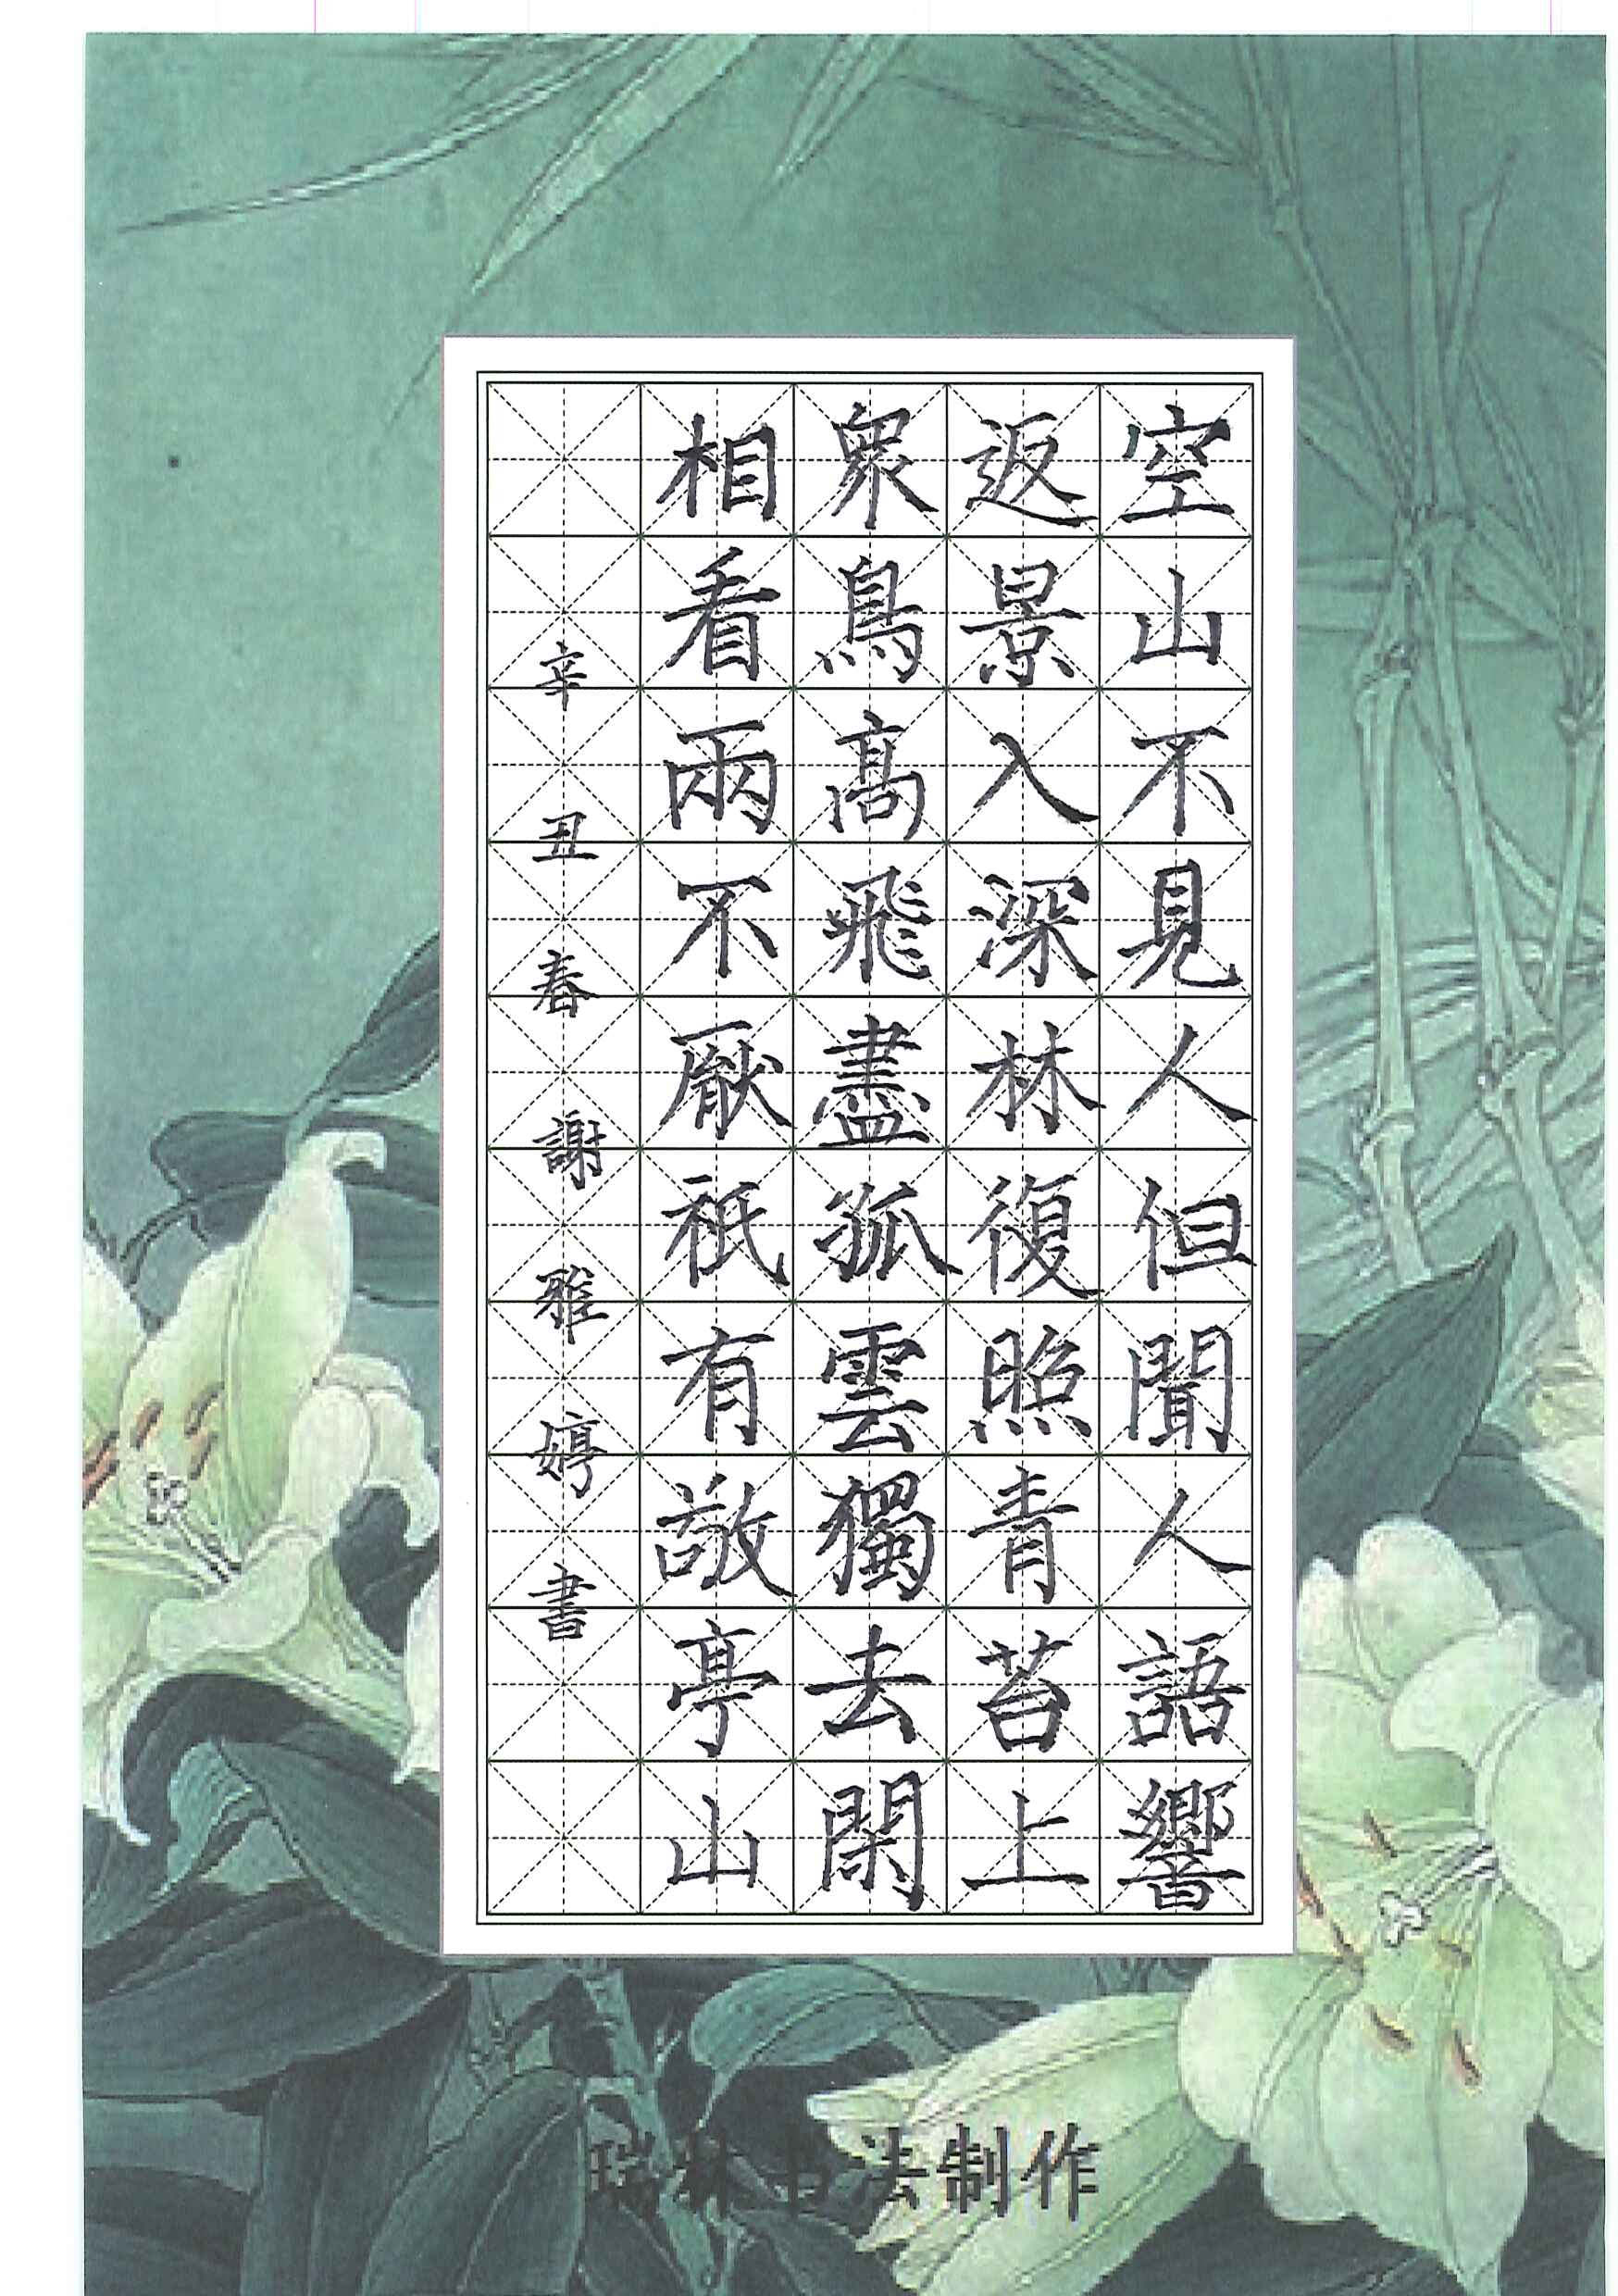 空山不見人但聞人語響
返景入深林復照青苔上
衆鳥高飛盡孤雲獨去閑
相看兩不厭祇有敬亭山
辛丑春謝雅婷書
瑞林书法制作